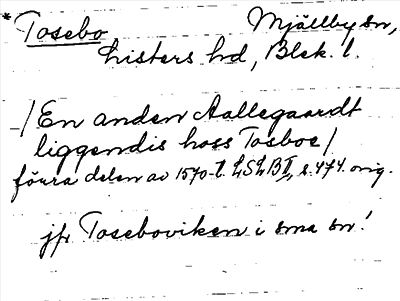 * Tosebo Mjällby sn,
Listers hd, Blek. l.
/En anden Aallegaardt
liggendis hoss Tosboe/
förra delen av 1570-t. LSLB II, s. 474. orig.
jfr Toseboviken i sma sn!